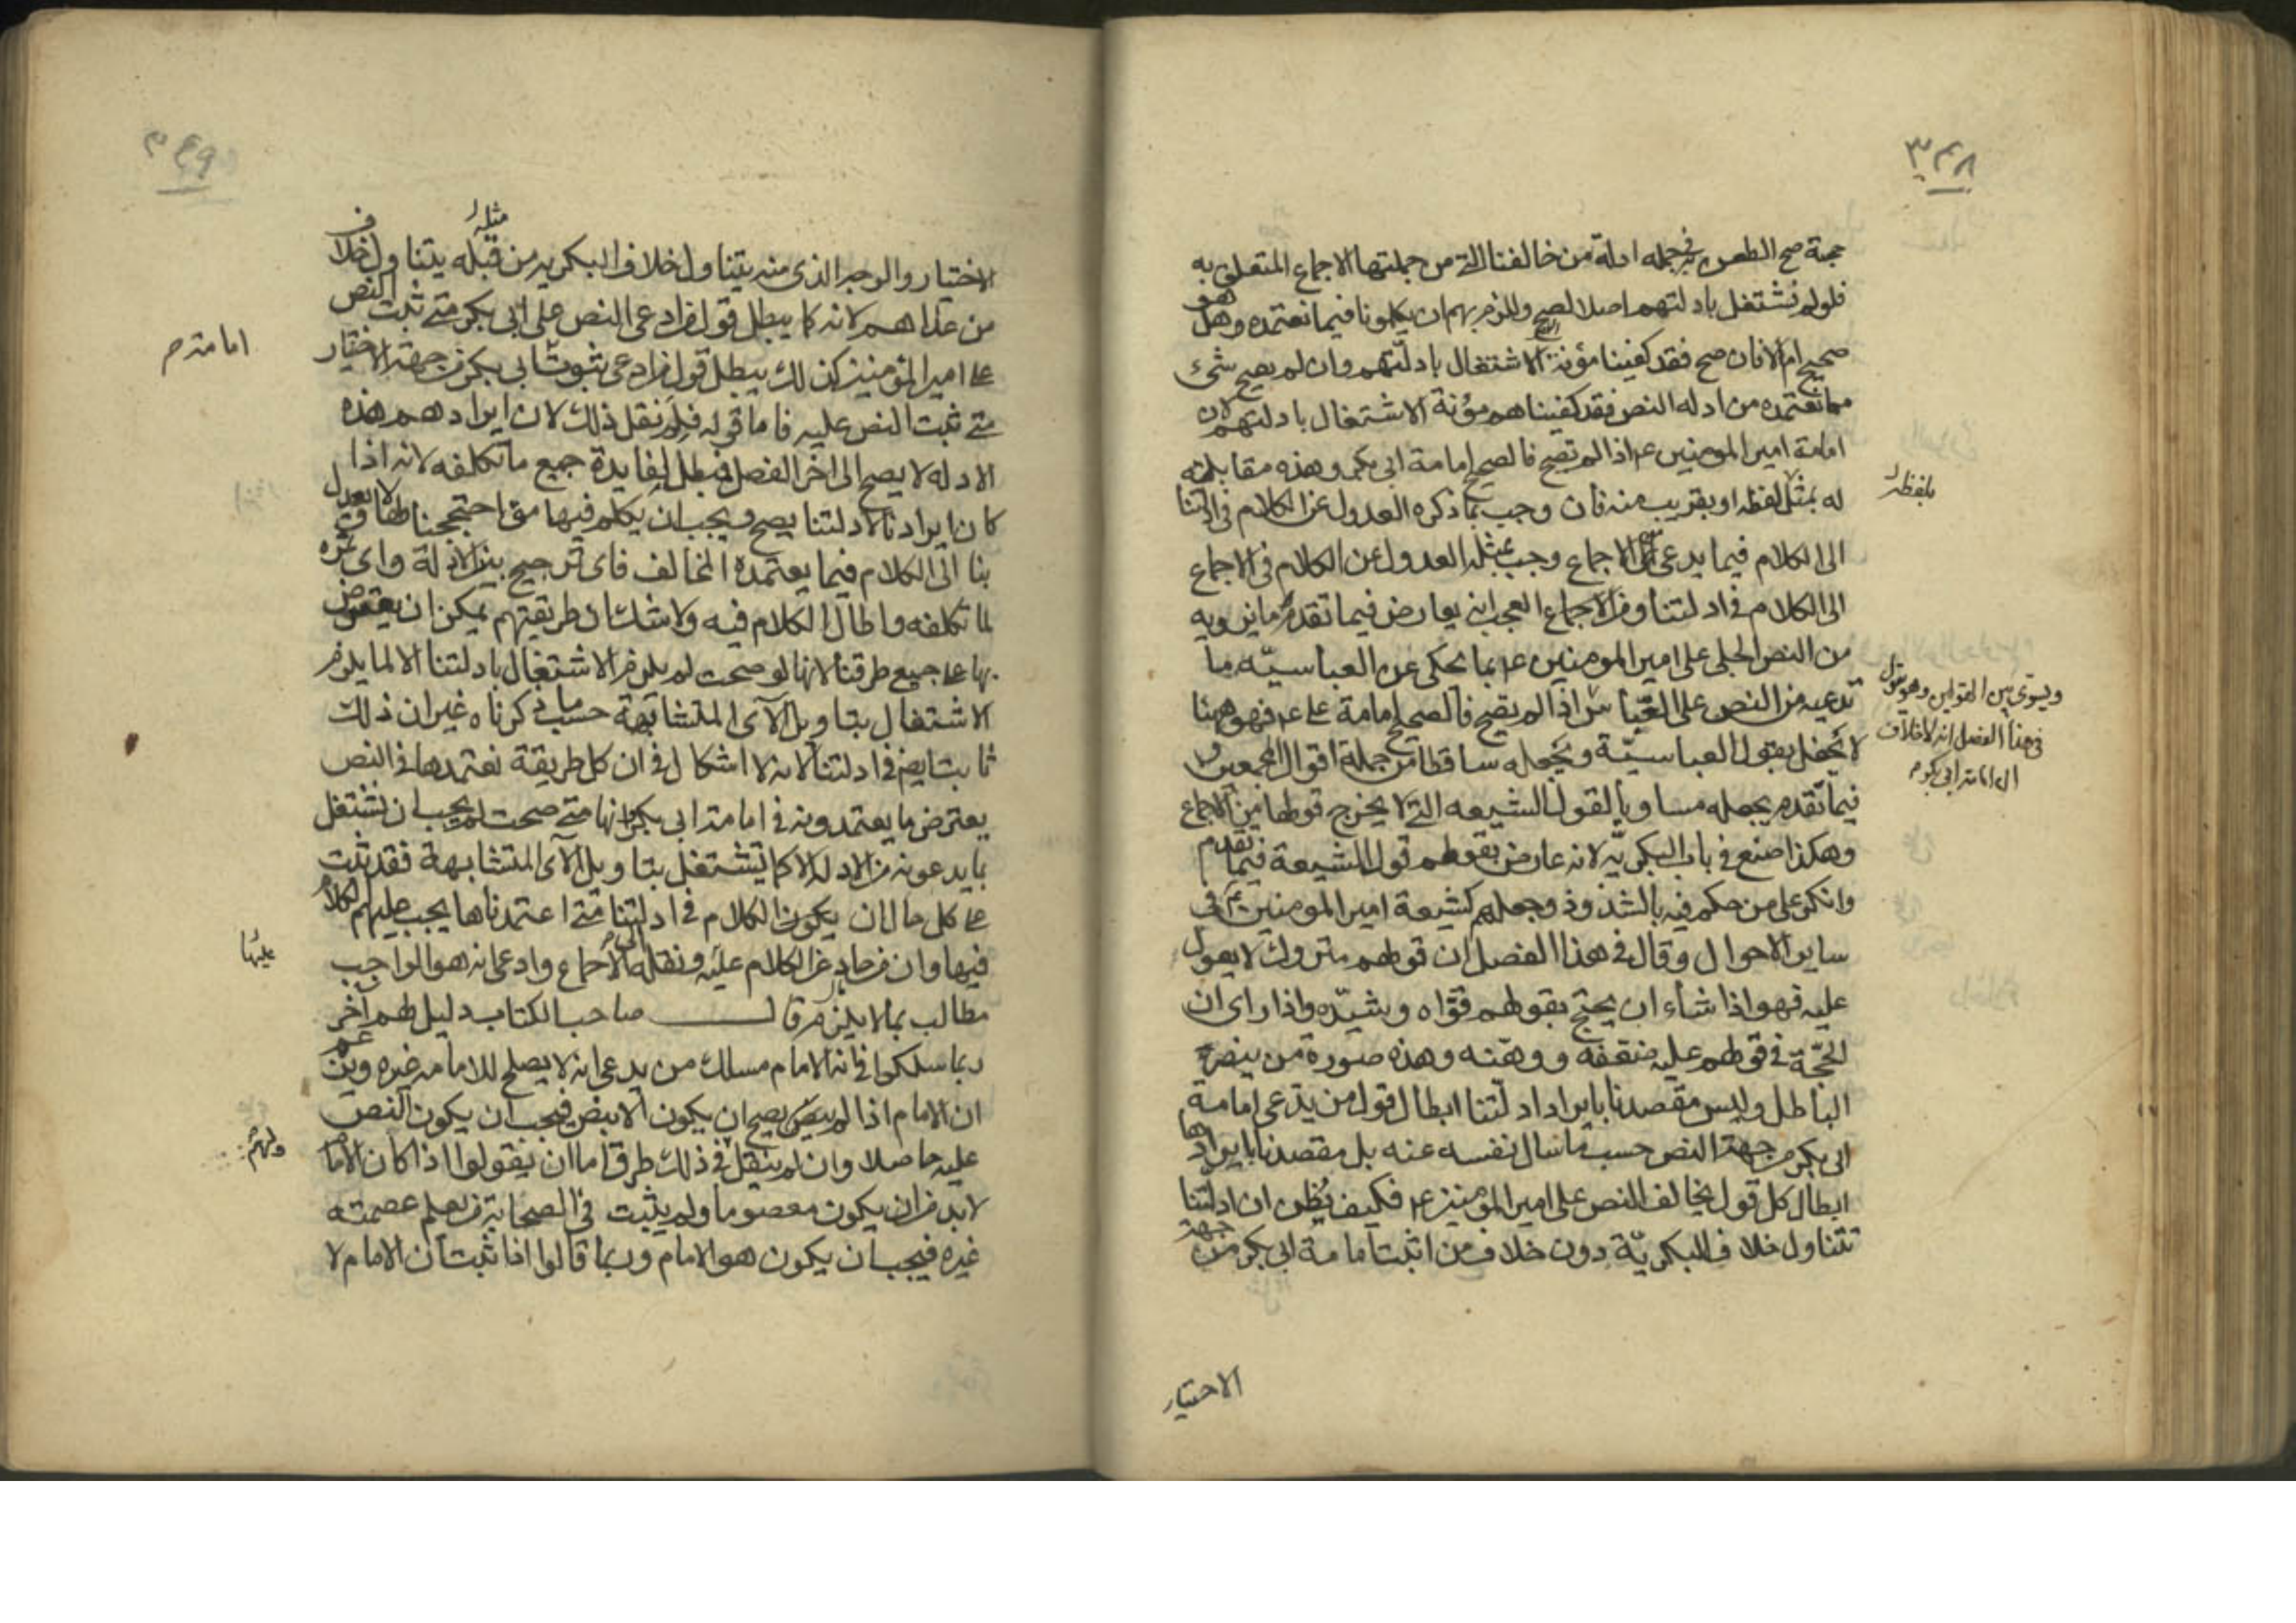 ٣٤٨
جهة صح الطعن في جمله ادلة من خالفنا التي من جملتها الاجماع المتعلق به
فلو لم نشتغل بادلتهم اصلا لصح وللزم بهم ان يكلمونا فيما نعتمده وهل هو
صحيح ام لا فان صح فقد كفينا مؤنة الاشتغال بادلتهم وان لم يصح شئ
مما نعتمده من ادله النص فقد كفيناهم مؤنة الاشتغال بادلتهم لان
امامة امير المومنين ع اذا لم تصح فالصحيح امامة ابي بكر وهذه مقابلة
له بمثل لفظه او بقريب منه فان وجب بما ذكره العدول عن الكلام في ادلتنا
بلفظه
الى الكلام فيما يدعي من الاجماع وجب بمثله العدول عن الكلام في الاجماع
الى الكلام في ادلتنا ومن الاجماع العجب انه يعارض فيما تقدم ما نرويه
من النص الجلي على امير المومنين ع بما يحكى عن العباسيّه ما
تدعيه من النص على العباس اذا لم يصح فالصحيح امامة على ع فهو ههنا
ويسوي بين القولين وهو يقول
في هذا الفصل انه لا خلاف
ان امامة ابي بكر
لا يحفل بقول العباسيّة ويجعله ساقطا من جملة اقوال المجمعين و
فيما تقدم يجعله مساويا لقول الشيعه التي لا يخرج قولها من الاجماع
وهكذا صنع في باب البكريّه لانه عارض بقولهم قول الشيعة فيما تقدم
وانكر على من حكم فيه بالشذوذ وجعلهم كشيعة امير المومنين ع في
ساير الاحوال وقال في هذا الفصل ان قولهم متروك لا يعول
عليه فهو اذا شاء ان يحتج بقولهم قوّاه وشيّده واذا راى ان
الحجّة في قولهم عليه ضعفه ووهنه وهذه صورة من ينصر
الباطل وليس مقصدنا بايراد ادلّتنا ابطال قول من يدّعى امامة
ابي بكر من جهة النص حسب ما سال نفسه عنه بل مقصدنا بايرادها
ابطال كل قول يخالف النص على امير المومنين ع فكيف يُظن ان ادلّتنا
تتناول خلاف البكريّة دون خلاف من اثبت امامة ابي بكر من جهة
الاختيار
٣٤٩
الاختيار والوجه الذى منه يتناول خلاف البكريه من قبله يتناول خلاف
مثله
من عداهم لانه كما يبطل قول من ادعى النص على ابي بكر متى ثبت النص
على امير المؤمنين كذلك يبطل قول من ادعى ثبوت ابي بكر من جهة الاختيار
امامته م
متى ثبت النص عليه فاما قوله فلم نقل ذلك لان ايرادهم هذه
الادله لا يصح الى اخر الفصل فيبطل لفايدة جميع ما تكلفه لانه اذا
كان ايرادنا لادلتنا يصح ويجب ان يكلم فيها متى احتججنا بها لا يعدل
بنا الى الكلام فيما يعتمده المخالف فاى ترجيح بين الادلة واى ثمره
لما تكلفه واطال الكلام فيه ولا شك ان طريقتهم يمكن ان يعترض
بها على جميع طرقنا لانها لو صحت لم يلزم الاشتغال بادلتنا الا لما يلزم
الاشتغال بتاويل الآى المتشابهة حسب ما ذكرناه غير ان ذلك
ثابت ايضا في ادلتنا لانه لا اشكال في ان كل طريقة نعتمدها في النص
يعترض ما يعتمدونه في امامة ابى بكر وانها متى صحت لم يجب ان نشتغل
بما يدعونه من الادله الا كما نشتغل بتاويل الآى المتشابهة فقد ثبت
على كل حال ان يكون الكلام في ادلتنا متى اعتمدناها يجب عليهم الكلام
فيها وان من حاد عن الكلام عليه ونقله الى الاجماع وادعى انه هو الواجب
عليها
مطالب بما لا يلزم قال صاحب الكتاب دليل لهم آخر
ربما سلكوا في انه الامام مسلك من يدعى انه لا يصلح للامامه غيره ويزعم
ان الامام اذا لم يبيّن يصح ان يكون الا بنص فيجب ان يكون النص
عليه حاصلا وان لم ينقل ولهم في ذلك طرق اما ان يقولوا اذا كان الامام
لا بد من ان يكون معصوما ولم يثبت في الصحابة من يعلم عصمته
غيره فيجب ان يكون هو الامام وربما قالوا اذا ثبت ان الامام لا